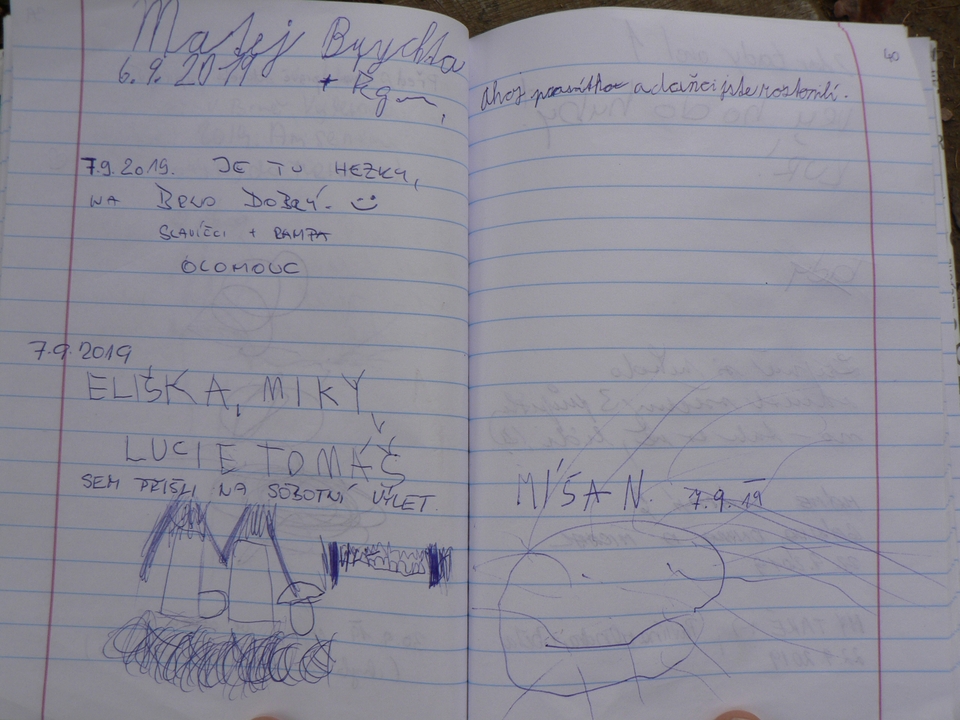 Matej Brychta
6.9.2019
7.9.2019. JE TU HEZKY,
NA BRNO DOBRÝ. :)
SLAVÍČCI + RAMPA
OLOMOUC
7.9.2019
ELIŠKA, MIKY,
LUCIE TOMÁŠ
SEM PŘIŠLI NA SOBOTNÍ VÝLET.
40
ahoj a daňci jste roztomilí.
MÍŠA N. 7.9.19